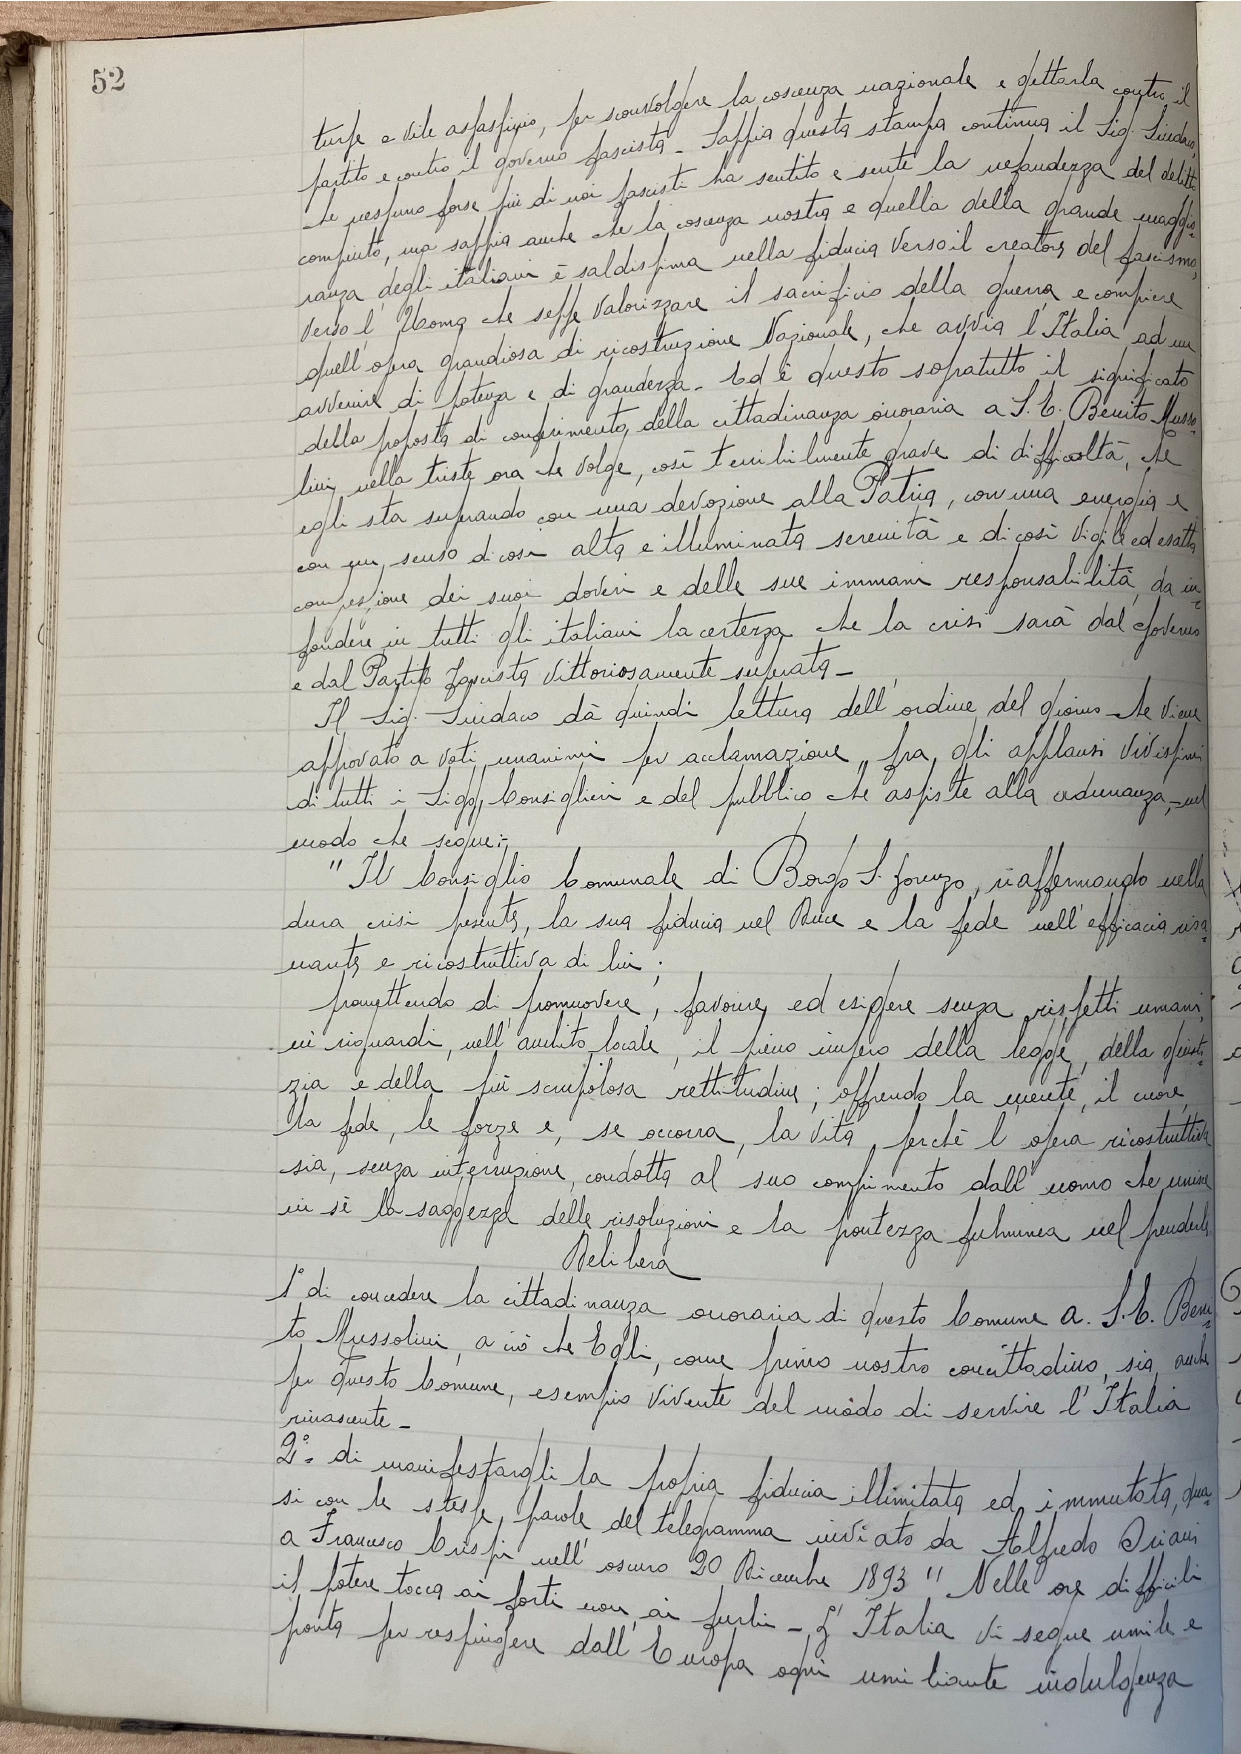 52
turpe e vile assassinio, per sconvolgere la coscienza nazionale e gettarla contro il
partito e contro il governo fascista - Sappia questa stampa continua il Sig. Sindaco,
che nessuno forse più di noi fascisti ha sentito e sente la nefandezza del delitto
compiuto, ma sappia anche che la coscienza nostra e quella della grande maggio=
ranza degli italiani è saldissima nella fiducia verso il creatore del fascismo,
verso l'Uomo che seppe valorizzare il sacrificio della guerra e compiere
quell'opera grandiosa di ricostruzione Nazionale, che avvia l'Italia ad un
avvenire di potenza e di grandezza - Ed è questo sopratutto il significato
della proposta di conferimento della cittadinanza onoraria a S. E. Benito Musso=
lini nella triste ora che volge, così terribilmente grave di difficoltà, che
egli sta superando con una devozione alla Patria, con una energia e
con un senso di così alta e illuminata serenità e di così vigile ed esatta
compressione dei suoi doveri e delle sue immani responsabilità, da in=
fondere in tutti gli italiani la certezza che la crisi sarà dal Governo
e dal Partito Fascista vittoriosamente superata -
Il Sig. Sindaco dà quindi lettura dell'ordine del giorno che viene
approvato a voti unanimi per acclamazione, fra gli applausi vivissimi
di tutti i Sigg. Consiglieri e del pubblico che assiste alla adunanza, nel
modo che segue:-
" Il Consiglio Comunale di Borgo S. Lorenzo, riaffermando nella
dura crisi presente, la sua fiducia nel Duce e la fede nell'efficacia risa=
nante e ricostruttiva di lui;
promettendo di promuovere, favorire, ed esigere senza rispetti umani,
nè riguardi, nell'ambito locale, il pieno impero della legge, della giusti=
zia e della più scrupolosa rettitudine; offrendo la mente, il cuore,
la fede, le forze e, se occorra, la vita, perchè l'opera ricostruttiva
sia, senza interruzione, condotta al suo compimento dall'uomo che unisce
in sè la saggezza delle risoluzioni e la prontezza fulminea nel prenderle
Delibera
1° di concedere la cittadinanza onoraria di questo Comune a. S. E. Beni=
to Mussolini, a ciò che Egli, come primo nostro concittadino, sia, anche
per questo Comune, esempio vivente del modo di servire l'Italia
rinascente -
2°. di manifestargli la propria fiducia illimitata ed immutata, qua=
si con le stesse parole del telegramma inviato da Alfredo Oriani
a Francesco Crispi nell'oscuro 20 Dicembre 1893 " Nelle ore difficili
il potere tocca ai forti non ai furbi - L'Italia vi segue umile e
pronta per respingere dall'Europa ogni umiliante indulgenza